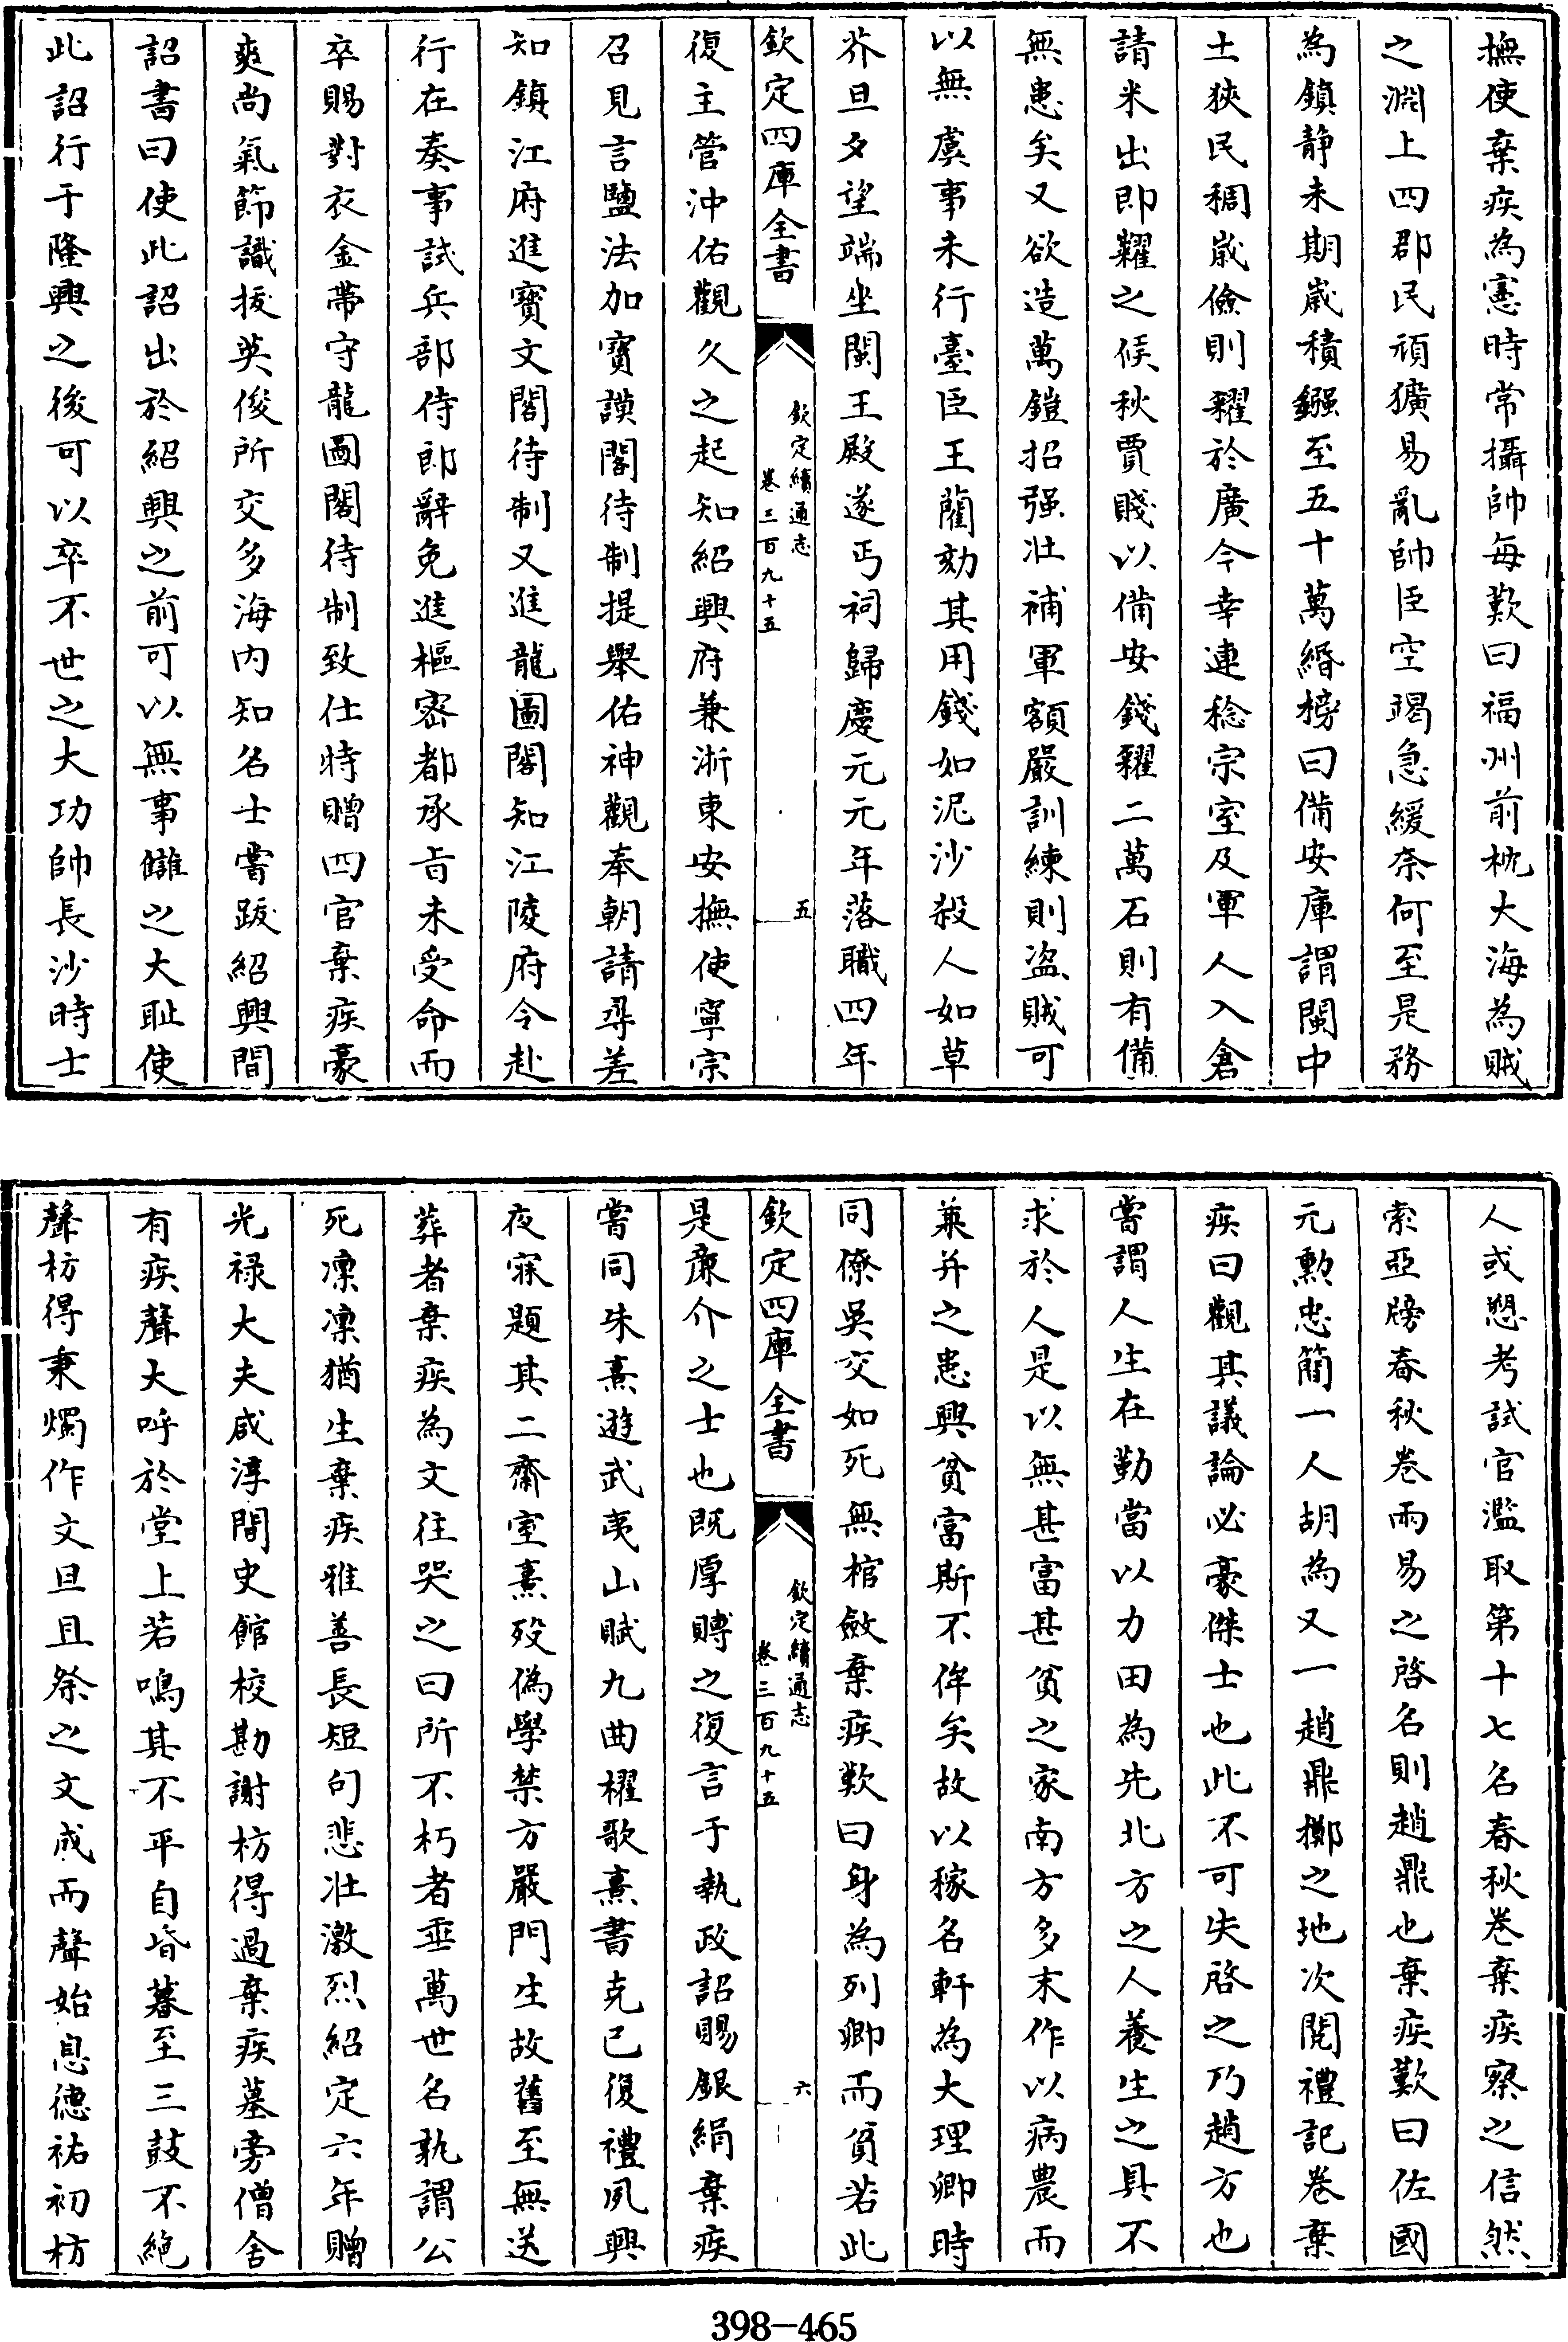 撫使棄疾為憲時常攝帥每歎曰福州前枕大海為賊
之淵上四郡民頑獷易亂帥臣空竭急緩奈何至是務
為鎮静未期歲積鏹至五十萬緡榜曰備安庫謂閩中
土狹民稠歲儉則糴於廣今幸連稔宗室及軍人入倉
請米出即糶之候秋賈賤以備安錢糴二萬石則有備
無患矣又欲造萬鎧招强壯補軍額嚴訓練則盜賊可
以無虞事未行臺臣王藺劾其用錢如泥沙殺人如草
芥旦夕望端坐閩王殿遂丐祠歸慶元元年落職四年
欽定四庫全書
欽定續通志
卷三百九十五
五
復主管沖佑觀久之起知紹興府兼浙東安撫使寧宗
召見言鹽法加寶謨閣待制提舉佑神觀奉朝請尋差
知鎮江府進寳文閣待制又進龍圖閣知江陵府令赴
行在奏事試兵部侍郎辭免進樞密都承旨未受命而
卒賜對衣金帶守龍圖閣待制致仕特贈四官棄疾豪
爽尚氣節識拔英俊所交多海内知名士嘗跋紹興間
詔書曰使此詔出於紹興之前可以無事讎之大恥使
此詔行于隆興之後可以卒不世之大功帥長沙時士
人或愬考試官濫取第十七名春秋卷棄疾察之信然
索亞牓春秋卷兩易之啓名則趙鼎也棄疾歎曰佐國
元勳忠簡一人胡為又一趙鼎擲之地次閱禮記卷棄
疾曰觀其議論必豪傑士也此不可失啓之乃趙方也
嘗謂人生在勤當以力田為先北方之人養生之具不
求於人是以無甚富甚貧之家南方多末作以病農而
兼并之患興貧富斯不侔矣故以稼名軒為大理卿時
同僚吳交如死無棺斂棄疾歎曰身為列卿而貧若此
欽定四庫全書
欽定續通志
卷三百九十五
六
是廉介之士也既厚賻之復言于執政詔賜銀絹棄疾
嘗同朱熹遊武夷山賦九曲櫂歌熹書克已復禮夙興
夜寐題其二齋室熹殁偽學禁方嚴門生故舊至無送
葬者棄疾為文往哭之曰所不朽者垂萬世名孰謂公
死凜凜猶生棄疾雅善長短句悲壯激烈紹定六年贈
光禄大夫咸淳間史館校勘謝枋得過棄疾墓旁僧舍
有疾聲大呼於堂上若鳴其不平自昏暮至三鼓不絶
聲枋得秉燭作文旦且祭之文成而聲始息德祐初枋
398-465